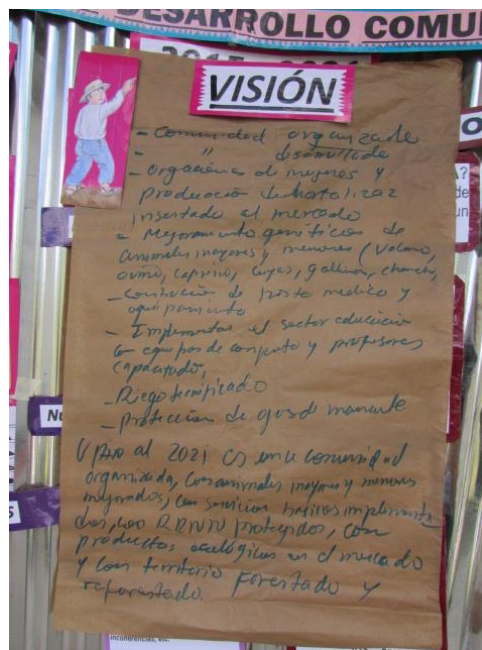 DESARROLLO COMU
VISIÓN
- Comunidad organizada
- " desarrollada
- Organización de mujeres y
producción de hortalizas
insertado al mercado
- Mejoramiento genético de
animales mayores y menores (vacuno,
ovino, caprino, cuyes, gallina, chancho,
- Construcción de posta medico y
equipamiento
- Implementar el sector educación
con equipos de computo y profesores
capacitado,
- Riego tecnificado
- protección de ojos de manante
al 2021 es una comunidad
organizada, con animales mayores y menores
mejorados, con servicios básicos implementa
dos, con RRNN protegidos, con
productos ecológicos en el mercado
y con territorio forestado y
reforestado.